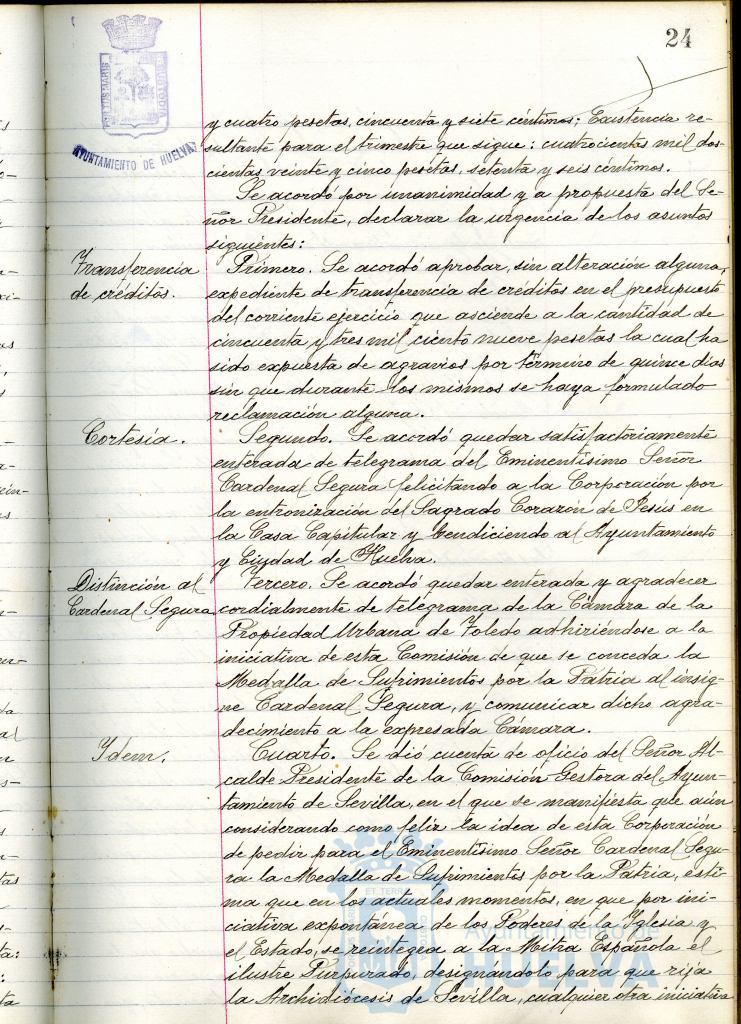 24
AYUNTAMIENTO DE HUELVA
y cuatro pesetas, cincuenta y siete céntimos; Existencia re-
sultante para el trimestre que sigue: cuatrocientas mil dos-
cientas veinte y cinco pesetas, setenta y seis céntimos.
Se acordó por unanimidad y a propuesta del Se-
ñor Presidente, declarar la urgencia de los asuntos
siguientes:
Transferencia
de créditos.
Primero. Se acordó aprobar, sin alteración alguna,
expediente de transferencia de créditos en el presupuesto
del corriente ejercicio que asciende a la cantidad de
cincuenta y tres mil ciento nueve pesetas la cual ha
sido expuesta de agravios por término de quince días
sin que durante los mismos se haya formulado
reclamación alguna.
Cortesía.
Segundo. Se acordó quedar satisfactoriamente
enterada de telegrama del Eminentísimo Señor
Cardenal Segura felicitando a la Corporación por
la entronización del Sagrado Corazón de Jesús en
la Casa Capitular y bendiciendo al Ayuntamiento
y Ciudad de Huelva.
Distinción al
Cardenal Segura
Tercero. Se acordó quedar enterada y agradecer
cordialmente de telegrama de la Cámara de la
Propiedad Urbana de Toledo adhiriéndose a la
iniciativa de esta Comisión de que se conceda la
Medalla de Sufrimientos por la Patria al insig-
ne Cardenal Segura, y comunicar dicho agra-
decimiento a la expresada Cámara.
Ydem.
Cuarto. Se dió cuenta de oficio del Señor Al-
calde Presidente de la Comisión Gestora del Ayun-
tamiento de Sevilla, en el que se manifiesta que aún
considerando como feliz la idea de esta Corporación
de pedir para el Eminentísimo Señor Cardenal Segu-
ra la Medalla de Sufrimientos por la Patria, esti-
ma que en los actuales momentos, en que por ini-
ciativa expontánea de los Poderes de la Yglesia y
el Estado, se reintegra a la Mitra Española el
ilustre Purpurado, designándolo para que rija
la Archidiócesis de Sevilla, cualquier otra iniciativa
Ayuntamiento de
HUELVA